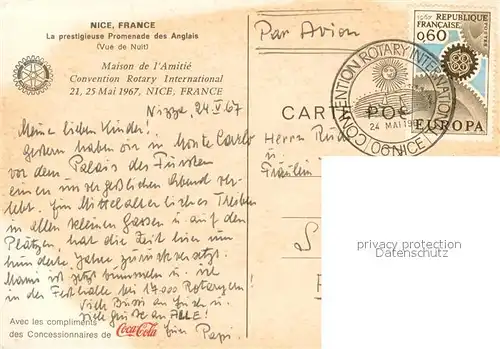 NICE, FRANCE
La prestigieuse Promenade des Anglais
(Vue de Nuit)
Maison de l'Amitié
Convention Rotary International
21, 25 Mai 1967, NICE, FRANCE
Nizza, 24.V.67
Meine lieben Kinder!
Gestern haben wir in Monte Carlo
vor dem Palais des Fürsten
einen unvergeßlichen Abend ver-
lebt. Ein Mittelalterliches Treiben
in allen kleinen Gassen u. auf den
Plätzen, hat die Zeit hier um
hunderte Jahre zurückversetzt.
Mami ist jetzt bummeln u. ich
in der Festhalle bei 17.000 Rotaryern!
Viele Bussi an Euch u.
Viele Grüße an ALLE!
Euer Papi
Avec les compliments
des Concessionnaires de Coca-Cola
Par Avion
CARTE POS
Herrn
u.
Fräulein
RÉPUBLIQUE
FRANÇAISE
0,60
POSTES
EUROPA
CONVENTION ROTARY INTERNATIONAL
24 MAI 1967
(06) NICE
privacy protection
Datenschutz